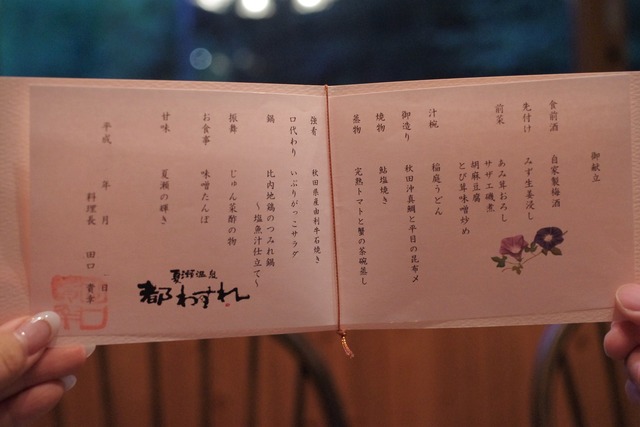 御献立
食前酒 自家製梅酒
先付け みず生姜浸し
前菜 あみ茸おろし
サザエ磯煮
胡麻豆腐
とび茸味噌炒め
汁椀 稲庭うどん
御造り 秋田沖真鯛と平目の昆布〆
焼物 鮎塩焼き
蒸物 完熟トマトと蟹の茶碗蒸し
強肴 秋田県産由利牛石焼き
口代わり いぶりがっこサラダ
鍋 比内地鶏のつみれ鍋
～塩魚汁仕立て～
振舞 じゅん菜酢の物
お食事 味噌たんぽ
甘味 夏瀬の輝き
平成 年 月 日
料理長 田口 貴幸
夏瀬温泉
都わすれ